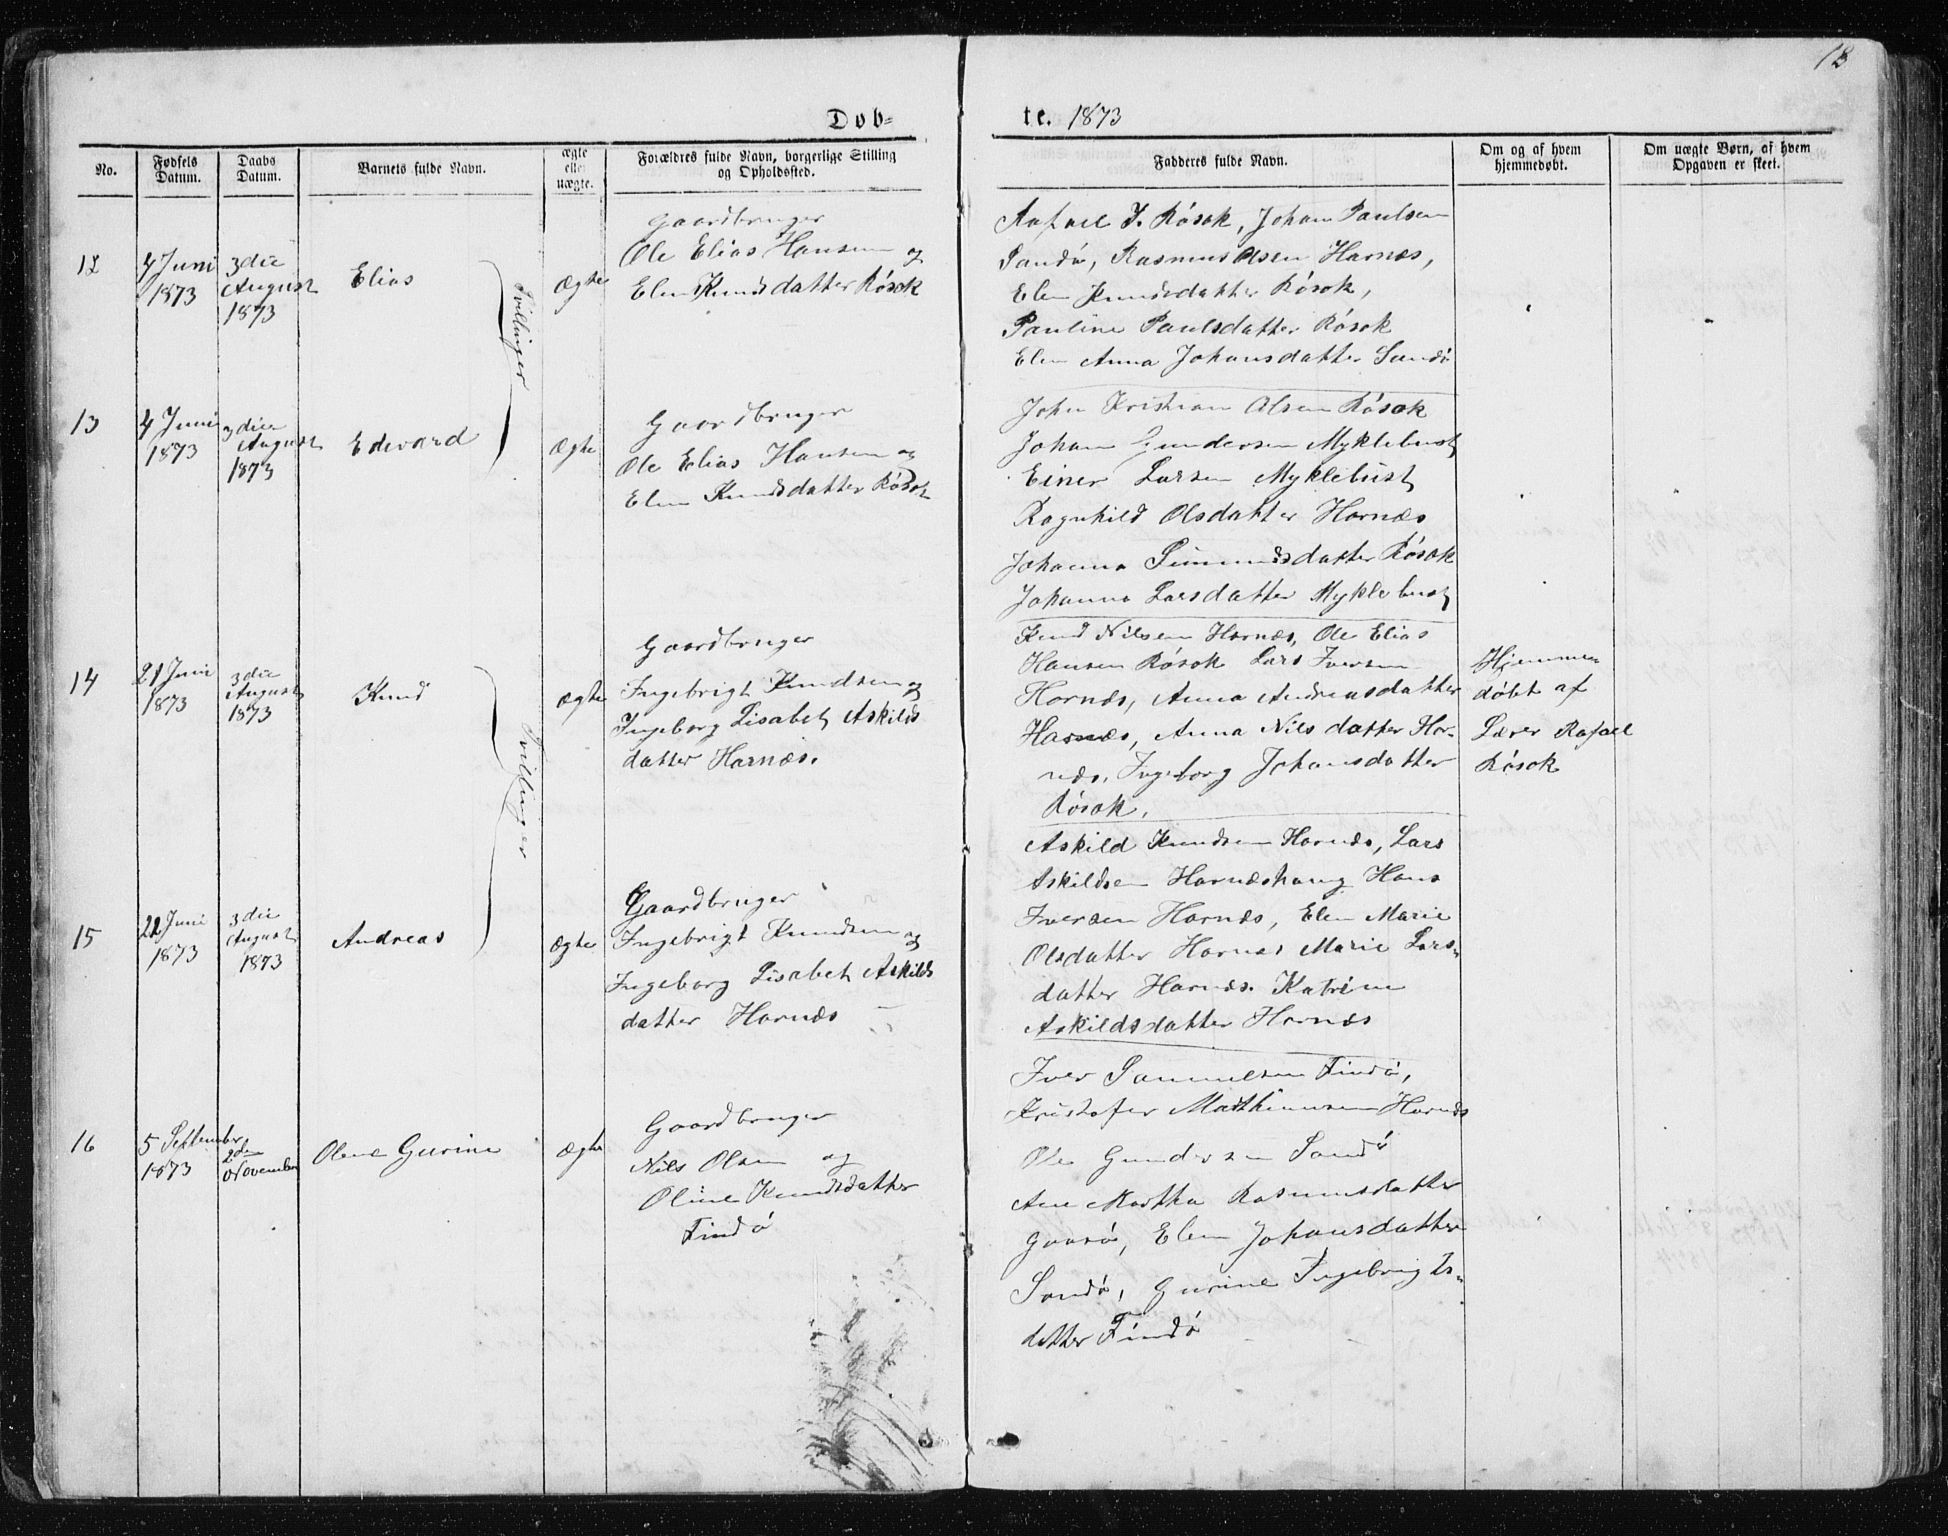 18
Døb=
te. 1873
No.
Fødsels Datum.
Daabs Datum.
Barnets fulde Navn.
ægte eller uægte.
Forældres fulde Navn, borgerlige Stilling og Opholdssted.
Fadderes fulde Navn.
Om og af hvem hjemmedøbt.
Om uægte Børn, af hvem Opgaven er skeet.
12
4 Juni
1873
3die
August
1873
Elias
Tvillinger
Ægte
Gaardbruger
Ole Elias Hansen og
Elen Knudsdatter Røsok
Rafael I. Røsok, Johan Paulsen
Sandø, Rasmus Olsen Harnæs,
Elen Knudsdatter Røsok,
Pauline Paulsdatter Røsok
Elen Anna Johansdatter Sandø
13
4 Juni
1873
3die
August
1873
Edevard
Ægte
Gaardbruger
Ole Elias Hansen og
Elen Knudsdatter Røsok
John Kristian Olsen Røsok
Johan Gundersen Myklebust
Einer Larsen Myklebust
Ragnhild Olsdatter Harnæs
Johanna Simmundsdatter Røsok
Johanna Larsdatter Myklebust
14
21 Juni
1873
3die
August
1873
Knud
Tvillinger
Ægte
Gaardbruger
Ingebrigt Knudsen og
Ingeborg Lisabet Askilds
datter Harnæs.
Knud Nilsen Harnæs, Ole Elias
Hansen Røsok Lars Iversen
Harnæs, Anna Andreasdatter
Harnæs, Anna Nilsdatter Har-
næs, Ingeborg Johansdatter
Røsok.
Hjemme
døbt af
Lærer Rafael
Røsok
15
22 Juni
1873
3die
August
1873
Andreas
Ægte
Gaardbruger
Ingebrigt Knudsen og
Ingeborg Lisabet Askilds
datter Harnæs
Askild Knudsen Harnæs, Lars
Askildsen Harnæshaug Hans
Iversen Harnæs, Elen Marie
Olsdatter Harnæs Marie Lars-
datter Harnæs. Katrine
Askildsdatter Harnæs
16
5 September
1873
2den
November
Olene Gurine
Ægte
Gaardbruger
Nils Olsen og
Oline Knudsdatter
Findø
Iver Samuelsen Findø,
Kristofer Matthiassen Harnæs
Ole Gundersen Sandø
Ane Martha Rasmusdatter
Gaasø, Elen Johansdatter
Sandø, Gurine Ingebrigts-
datter Findø